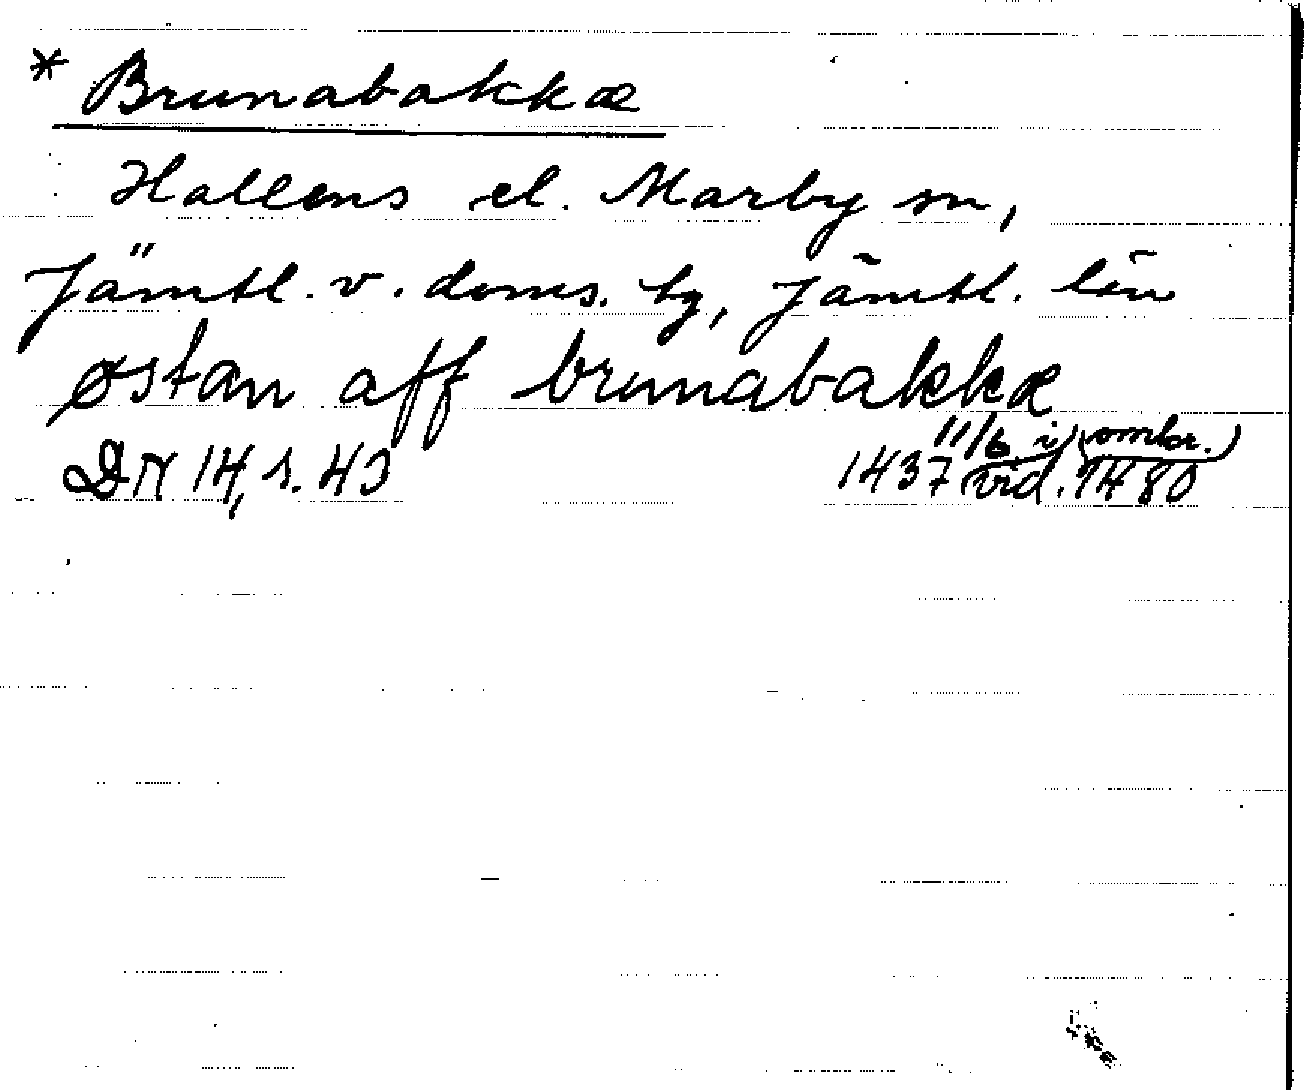 * Brunabakkæ
Hallens el. Marby sn,
Jämtl. v. doms. tg, Jämtl. län
østan aff brunabakkæ
DN 14, s. 43 1437 11/6 i (vid. ombr.) 1480